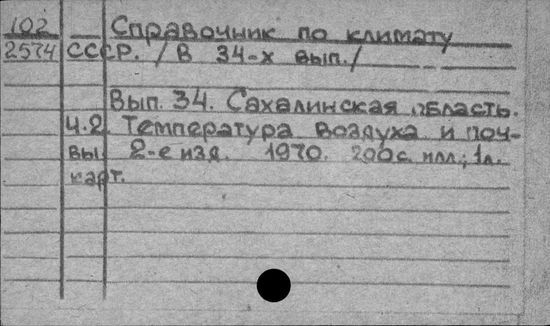 102 Справочник по климату
2574 СССР. /В 34-х вып./
Вып. 34. Сахалинская область.
Ч.2. Температура воздуха и поч-
вы. 2-е изд. 1970. 200с. илл.; 1л.
карт.